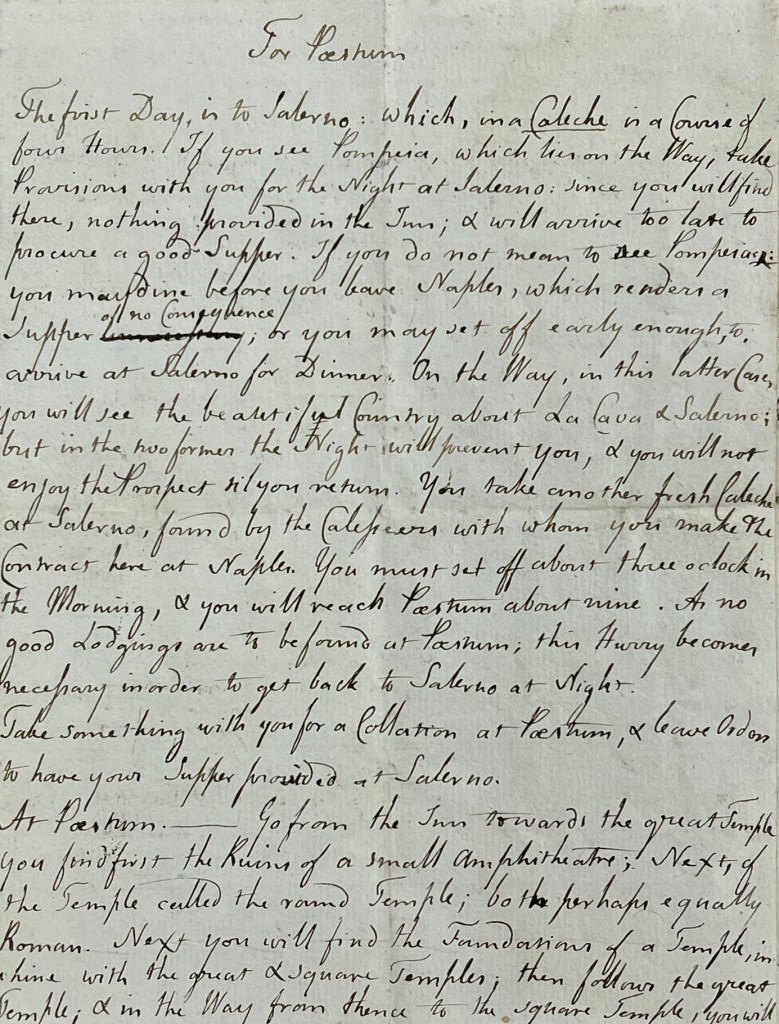 For Pæstum
The first Day, is to Salerno: which, in a Caleche is a Course of
four Hours. If you see Pompeia, which lies on the Way, take
Provisions with you for the Night at Salerno: since you will find
there, nothing provided in the Inn; & will arrive too late to
procure a good Supper. If you do not mean to see Pompeia:
you may dine before you leave Naples, which renders a
of no Consequence
Supper unnecessary; or you may set off early enough, to
arrive at Salerno for Dinner. On the Way, in this latter Case,
you will see the beautiful Country about La Cava & Salerno;
but in the two former the Night will prevent you, & you will not
enjoy the Prospect til you return. You take another fresh Caleche
at Salerno, found by the Calesseers with whom you make the
Contract here at Naples. You must set off about three oclock in
the Morning, & you will reach Pæstum about nine. As no
good Lodgings are to be found at Pæstum; this Hurry becomes
necessary in order to get back to Salerno at Night.
Take something with you for a Collation at Pæstum, & leave Orders
to have your Supper provided at Salerno.
At Pæstum. — Go from the Inn towards the great Temple
you find first the Ruins of a small Amphitheatre; Next, of
the Temple called the round Temple; both perhaps equally
Roman. Next you will find the Foundations of a Temple, in
Line with the great & square Temples; then follows the great
Temple; & in the Way from thence to the square Temple, you will